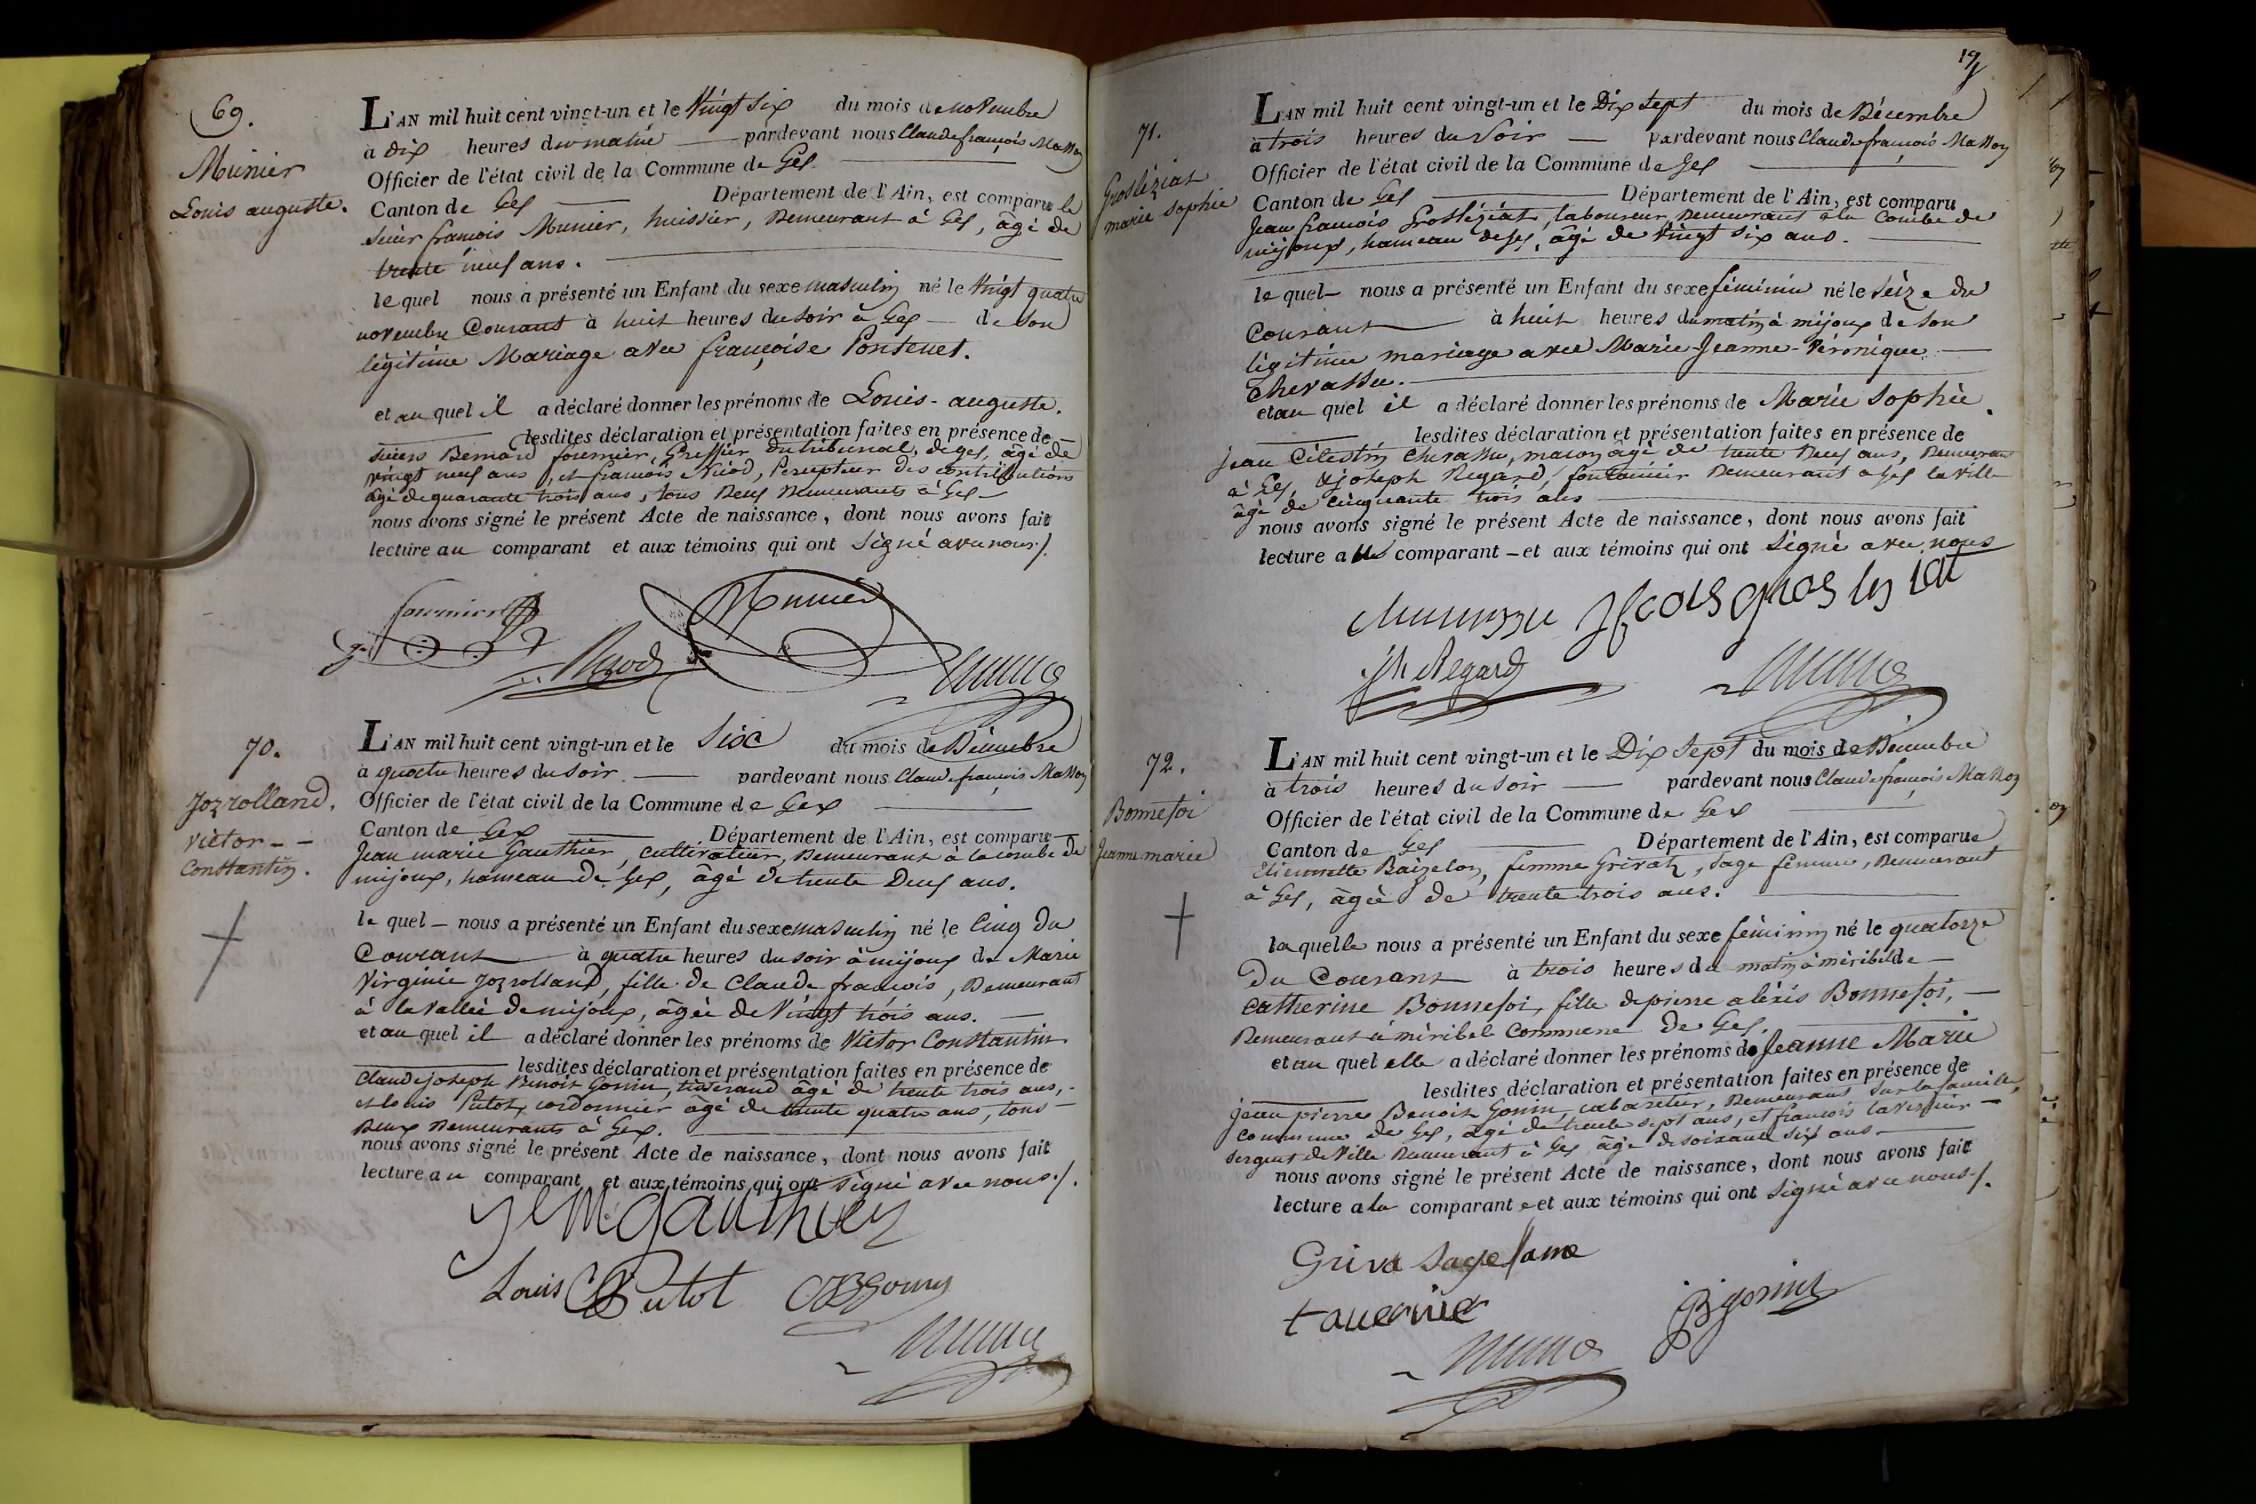 69.
Munier
Louis auguste.
L'AN mil huit cent vingt-un et le Vingt six du mois de novembre
à Dix heures du matin pardevant nous Claude françois Masson
Officier de l'état civil de la Commune de Gex
Canton de Gex Département de l'Ain, est comparu le
sieur francois Munier, huissier, Demeurant à Gex, âgé de
trente neuf ans.
le quel nous a présenté un Enfant du sexe masculin né le Vingt quatre
novembre Courant à huit heures du soir à Gex de son
légitime Mariage avec françoise Pontenet.
et au quel il a déclaré donner les prénoms de Louis-auguste.
lesdites déclaration et présentation faites en présence de
sieurs Bernard fournier, Greffier du tribunal, de gex, âgé de
vingt neuf ans, et francois Niod, Percepteur des contributions
âgé de quarante trois ans, tous Deux Demeurants à Gex
nous avons signé le présent Acte de naissance, dont nous avons fait
lecture au comparant et aux témoins qui ont signé avec nous /.
fournier
Munier
Niod
70.
Jozrolland,
victor - -
Constantin.
L'AN mil huit cent vingt-un et le Six du mois de Décembre
à quatre heures du soir pardevant nous Claude françois Masson
Officier de l'état civil de la Commune de Gex
Canton de Gex Département de l'Ain, est comparu
Jean marie Gauthier, Cultivateur, Demeurant à la combe de
mijoux, hameau de Gex, âgé de trente Deux ans.
le quel nous a présenté un Enfant du sexe masculin né le Cinq du
Courant à quatre heures du soir à mijoux de Marie
Virginie Jozrolland, fille de Claude francois, Demeurant
à la vallée de mijoux, âgée de Vingt trois ans.
et au quel il a déclaré donner les prénoms de Victor Constantin
lesdites déclaration et présentation faites en présence de
Claude joseph Benoit Gonin, tisserand âgé de trente trois ans,
et Louis Putot, cordonnier âgé de trente quatre ans, tous
Deux Demeurants à Gex.
nous avons signé le présent Acte de naissance, dont nous avons fait
lecture au comparant et aux témoins qui ont signé avec nous /.
J M gauthier
Louis Putot
CJBgonin
19
71.
Grosléziat
marie sophie
L'AN mil huit cent vingt-un et le Dix sept du mois de Décembre
à trois heures du soir pardevant nous Claude françois Masson
Officier de l'état civil de la Commune de Gex
Canton de Gex Département de l'Ain, est comparu
Jean francois Grosléziat, laboureur, Demeurant à la Combe de
mijoux, hameau de Gex, âgé de Vingt six ans.
le quel nous a présenté un Enfant du sexe féminin né le Seize du
Courant à huit heures du matin à mijoux de son
légitime mariage avec Marie-Jeanne-Véronique
Chevassu.
et au quel il a déclaré donner les prénoms de Marie Sophie.
lesdites déclaration et présentation faites en présence de
Jean Célestin Chevassu, maçon, âgé de trente Deux ans, Demeurant
à Gex, & Joseph Regard, fontainier Demeurant à Gex la ville
âgé de Cinquante trois ans
nous avons signé le présent Acte de naissance, dont nous avons fait
lecture aux comparant et aux témoins qui ont signé avec nous
Jfcois groslesiat
jh Regard
72.
Bonnefoi
Jeanne marie
L'AN mil huit cent vingt-un et le Dix Sept du mois de Décembre
à trois heures du soir pardevant nous Claude françois Masson
Officier de l'état civil de la Commune de Gex
Canton de Gex Département de l'Ain, est comparue
Etiennette Baizelon, femme Grivat, sage femme, Demeurant
à Gex, âgée de trente trois ans.
la quelle nous a présenté un Enfant du sexe féminin né le quatorze
Du Courant à trois heures du matin à miribel de
Catherine Bonnefoi, fille de pierre aléxis Bonnefoi,
Demeurant à miribel Commune de Gex.
et au quel elle a déclaré donner les prénoms de Jeanne Marie
lesdites déclaration et présentation faites en présence de
jean pierre Benoit Gonin, cabaretier, Demeurant sur la famille,
commune de Gex, âgé de trente sept ans, et francois tavernier
sergent de Ville Demeurant à Gex âgé de soixante six ans
nous avons signé le présent Acte de naissance, dont nous avons fait
lecture à la comparante et aux témoins qui ont signé avec nous /.
Griva sage fame
tavernier
JBgonin